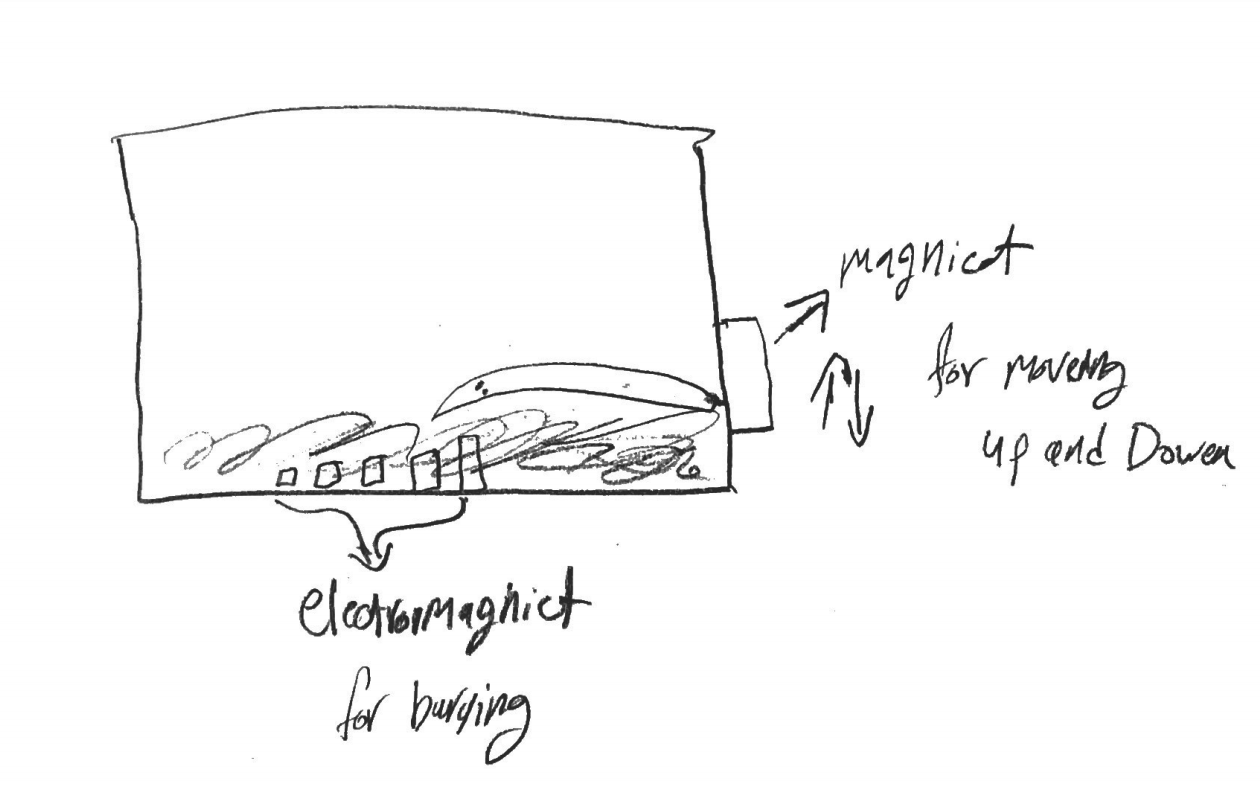 magnict
for moveing
up and Dowen
electromagnict
for burying